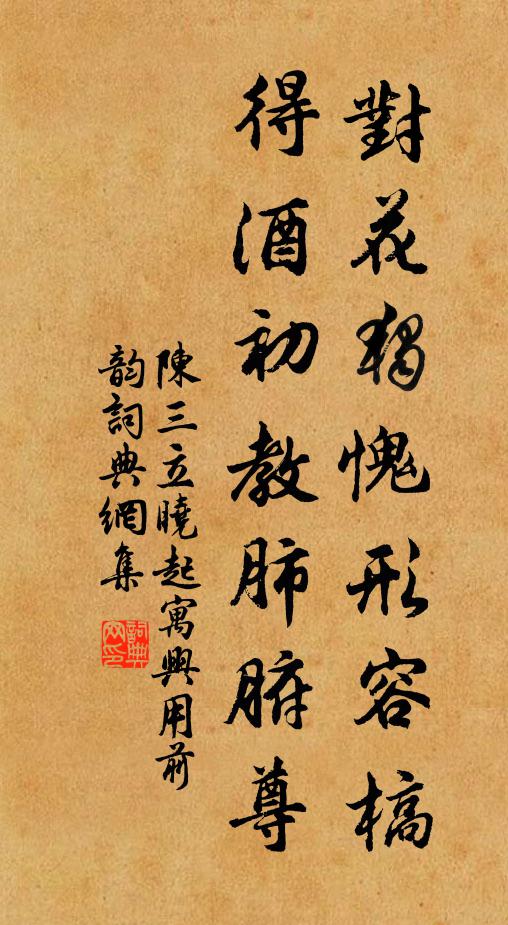 對花猶愧形容槁
得酒初教肺腑尊
陳三立曉起寓興用前
韵詞典網集
詞典
网印